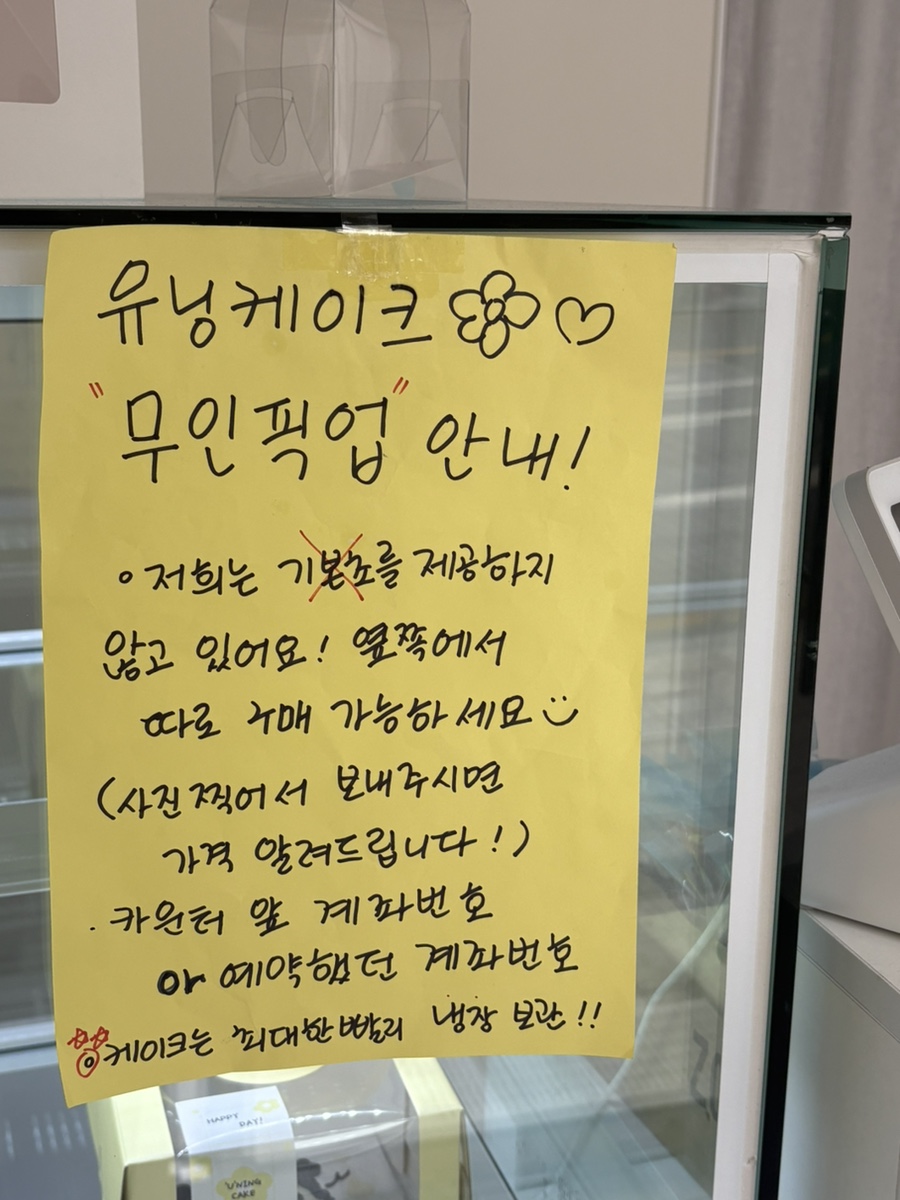 유닝케이크
"무인픽업" 안내!
◦ 저희는 기본초를 제공하지
않고 있어요! 옆쪽에서
따로 구매 가능하세요
(사진 찍어서 보내주시면
가격 알려드립니다!)
· 카운터 앞 계좌번호
or 예약했던 계좌번호
케이크는 최대한 빨리 냉장 보관!!
HAPPY
DAY!
U'NING
CAKE